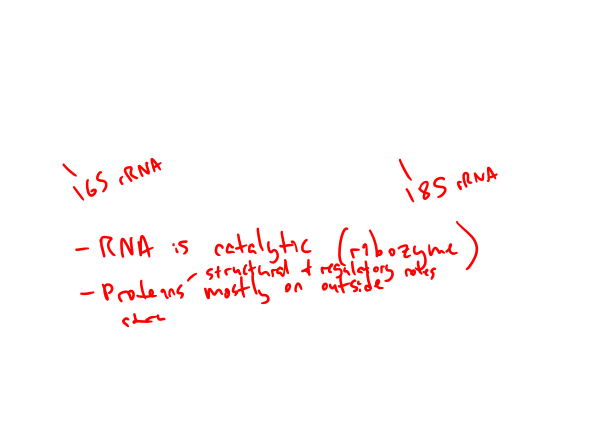 16S rRNA
18S rRNA
- RNA is catalytic (ribozyme)
structural + regulatory roles
- Proteins mostly on outside